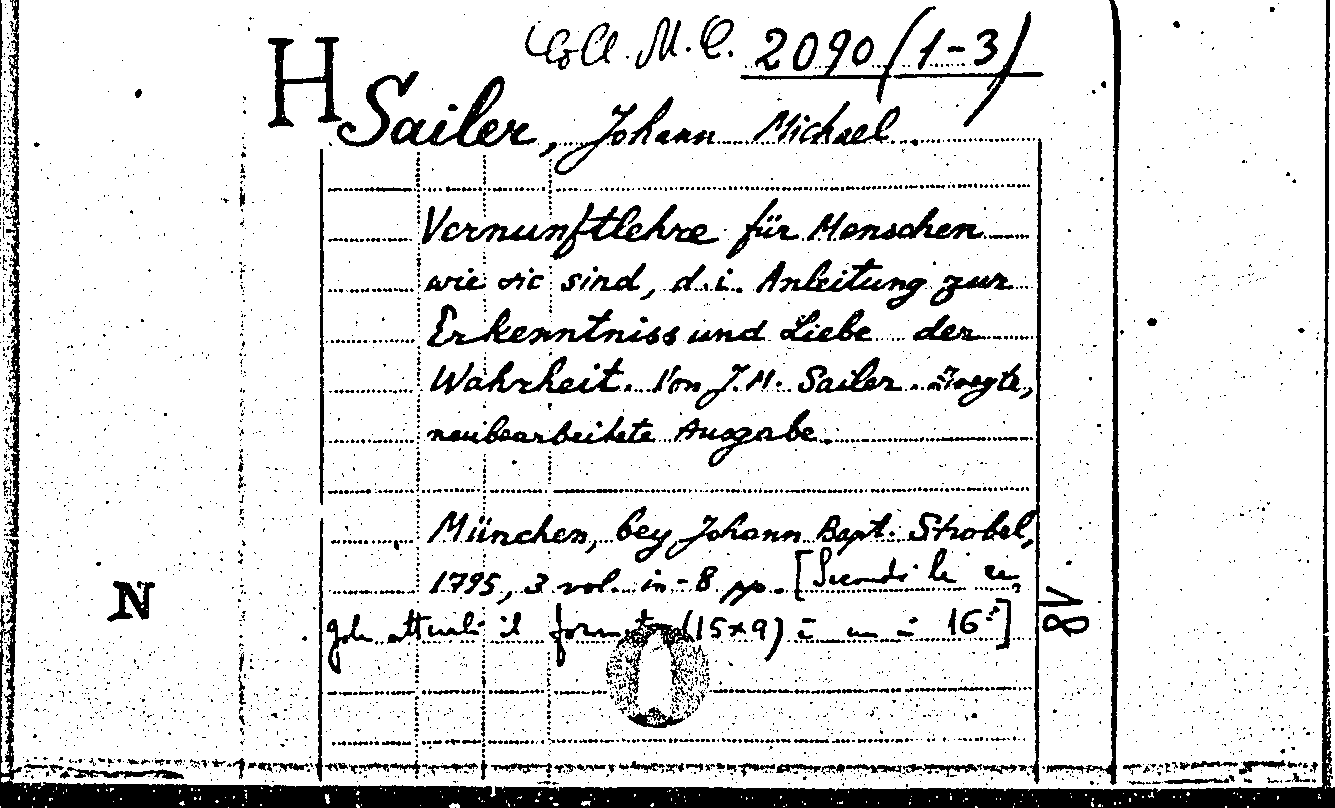 Coll. M. C. 2090 (1-3)
H Sailer, Johann Michael.
Vernunftlehre für Menschen
wie sie sind, d. i. Anleitung zur
Erkenntniss und Liebe der
Wahrheit. Von J. M. Sailer. Zweyte,
neubearbeitete Ausgabe.
München, bey Johann Bapt. Strobel,
1795, 3 vol. in-8 pp. [Secondo le re-
gole attuali il formato (15x9) è un in 16º]
N
81